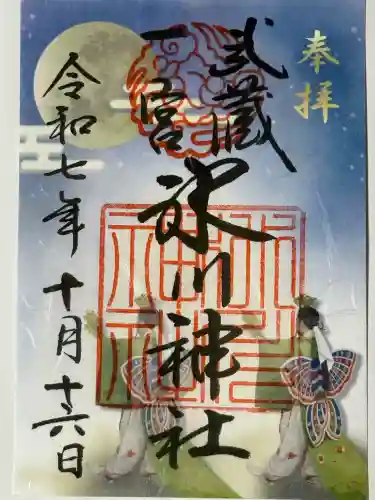 奉拝
武蔵
一宮
氷川神社
令和七年十月十六日